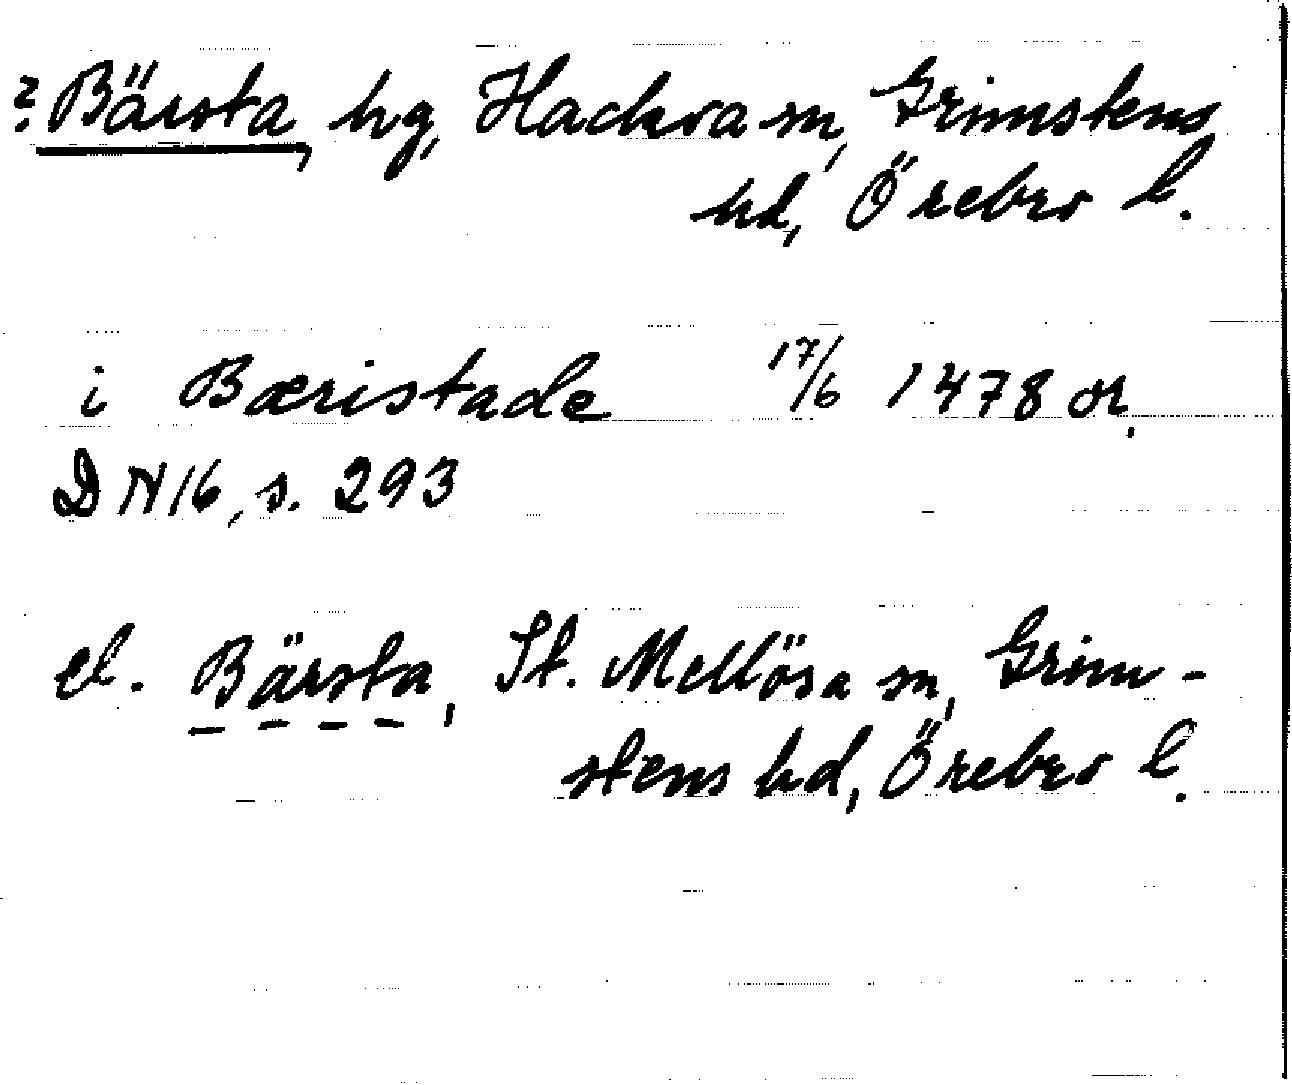 ? Bärsta, hg, Hackvad sn, Grimstens
hd, Örebro l.
i Bæristade 17/6 1478 or.
DN 16, s. 293
el. Bärsta, St. Mellösa sn, Grim-
stens hd, Örebro l.